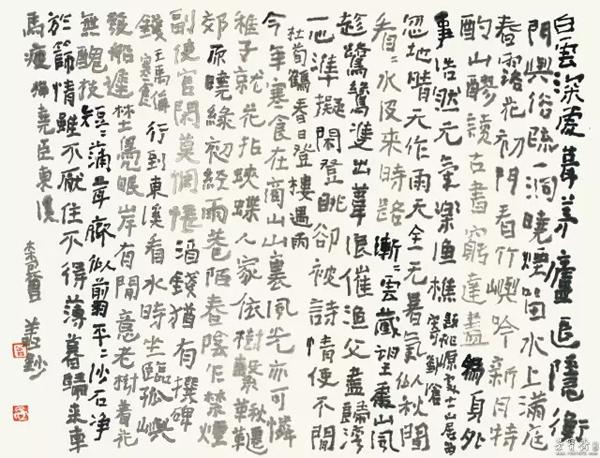 白雲深處葺茅廬退隱衡
門與俗疏一洞曉煙留水上滿庭
春露花初閒看竹嶼吟新月特
酌山醪讀古書窮達盡為身外
事浩然元氣樂漁樵 原處士山居
寄劉滄
忽地晴天作雨天全無暑氣似秋間
看〻水没來時路漸〻雲藏望處山風
趁鷺鷥雙出葦浪催漁父盡歸灣
一心準擬閒登眺卻被詩情使不閒
杜荀鶴春日登樓遇雨
今年寒食在商山山裏風光亦可憐
稚子就花拈蛺蝶人家依樹繫鞦韆
郊原曉綠初經雨巷陌春陰乍禁煙
副使官閒莫惆悵酒錢猶有撰碑
錢 王禹偁寒食 行到東溪看水時坐臨孤嶼
發船遲埜鳧眠岸有閒意老樹著花
無醜枝短〻蒲茸齊似剪平〻沙石淨
於篩情雖不厭住不得薄暮歸來車
馬疲 梅堯臣東溪